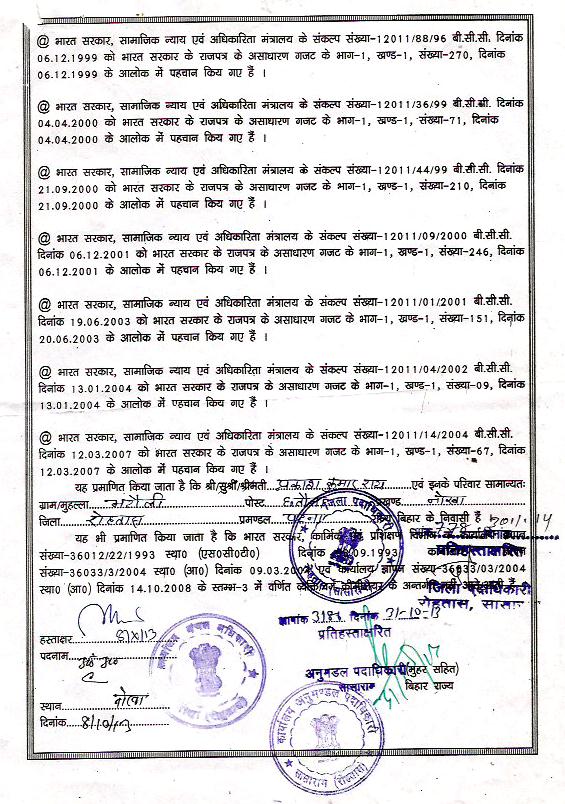 @ भारत सरकार, सामाजिक न्याय एवं अधिकारिता मंत्रालय के संकल्प संख्या-12011/88/96 बी.सी.सी. दिनांक
06.12.1999 को भारत सरकार के राजपत्र के असाधारण गजट के भाग-1, खण्ड-1, संख्या-270, दिनांक
06.12.1999 के आलोक में पहचान किए गए हैं ।
@ भारत सरकार, सामाजिक न्याय एवं अधिकारिता मंत्रालय के संकल्प संख्या-12011/36/99 बी.सी.सी. दिनांक
04.04.2000 को भारत सरकार के राजपत्र के असाधारण गजट के भाग-1, खण्ड-1, संख्या-71, दिनांक
04.04.2000 के आलोक में पहचान किए गए हैं ।
@ भारत सरकार, सामाजिक न्याय एवं अधिकारिता मंत्रालय के संकल्प संख्या-12011/44/99 बी.सी.सी. दिनांक
21.09.2000 को भारत सरकार के राजपत्र के असाधारण गजट के भाग-1, खण्ड-1, संख्या-210, दिनांक
21.09.2000 के आलोक में पहचान किय गए हैं ।
@ भारत सरकार, सामाजिक न्याय एवं अधिकारिता मंत्रालय के संकल्प संख्या-12011/09/2000 बी.सी.सी.
दिनांक 06.12.2001 को भारत सरकार के राजपत्र के असाधारण गजट के भाग-1, खण्ड-1, संख्या-246, दिनांक
06.12.2001 के आलोक में पहचान किय गए हैं ।
@ भारत सरकार, सामाजिक न्याय एवं अधिकारिता मंत्रालय के संकल्प संख्या-12011/01/2001 बी.सी.सी.
दिनांक 19.06.2003 को भारत सरकार के राजपत्र के असाधारण गजट के भाग-1, खण्ड-1, संख्या-151, दिनांक
20.06.2003 के आलोक में पहचान किय गए हैं ।
@ भारत सरकार, सामाजिक न्याय एवं अधिकारिता मंत्रालय के संकल्प संख्या-12011/04/2002 बी.सी.सी.
दिनांक 13.01.2004 को भारत सरकार के राजपत्र के असाधारण गजट के भाग-1, खण्ड-1, संख्या-09, दिनांक
13.01.2004 के आलोक में पहचान किय गए हैं ।
@ भारत सरकार, सामाजिक न्याय एवं अधिकारिता मंत्रालय के संकल्प संख्या-12011/14/2004 बी.सी.सी.
दिनांक 12.03.2007 को भारत सरकार के राजपत्र के असाधारण गजट के भाग-1, खण्ड-1, संख्या-67, दिनांक
12.03.2007 के आलोक में पहचान किय गए हैं ।
यह प्रमाणित किया जाता है कि श्री/सुश्री/श्रीमती प्रकाश कुमार राय एवं इनके परिवार सामान्यतः
ग्राम/मुहल्ला पोस्ट खण्ड नोखा
जिला रोहतास प्रमण्डल पटना बिहार के निवासी हैं
यह भी प्रमाणित किया जाता है कि भारत सरकार, कार्मिक प्रशिक्षण
संख्या-36012/22/1993 स्था0 (एस0सी0टी0) दिनांक 09.1993 प्रतिहस्ताक्षरित
संख्या-36033/3/2004 स्था0 (आ0) दिनांक 09.03. ज्ञापन संख्या-36033/03/2004
स्था0 (आ0) दिनांक 14.10.2008 के स्तम्भ-3 में वर्णित के अन्तर्गत नहीं आते
जिला पदाधिकारी
रोहतास, सासाराम
ज्ञापांक 3184 दिनांक 31-10-13
प्रतिहस्ताक्षरित
हस्ताक्षर
पदनाम
अनुमंडल पदाधिकारी (मुहर सहित)
सासाराम बिहार राज्य
स्थान नोखा
दिनांक 8/10/13
जिला पदाधिकारी
कार्यालय अनुमण्डल पदाधिकारी
सासाराम (रोहतास)